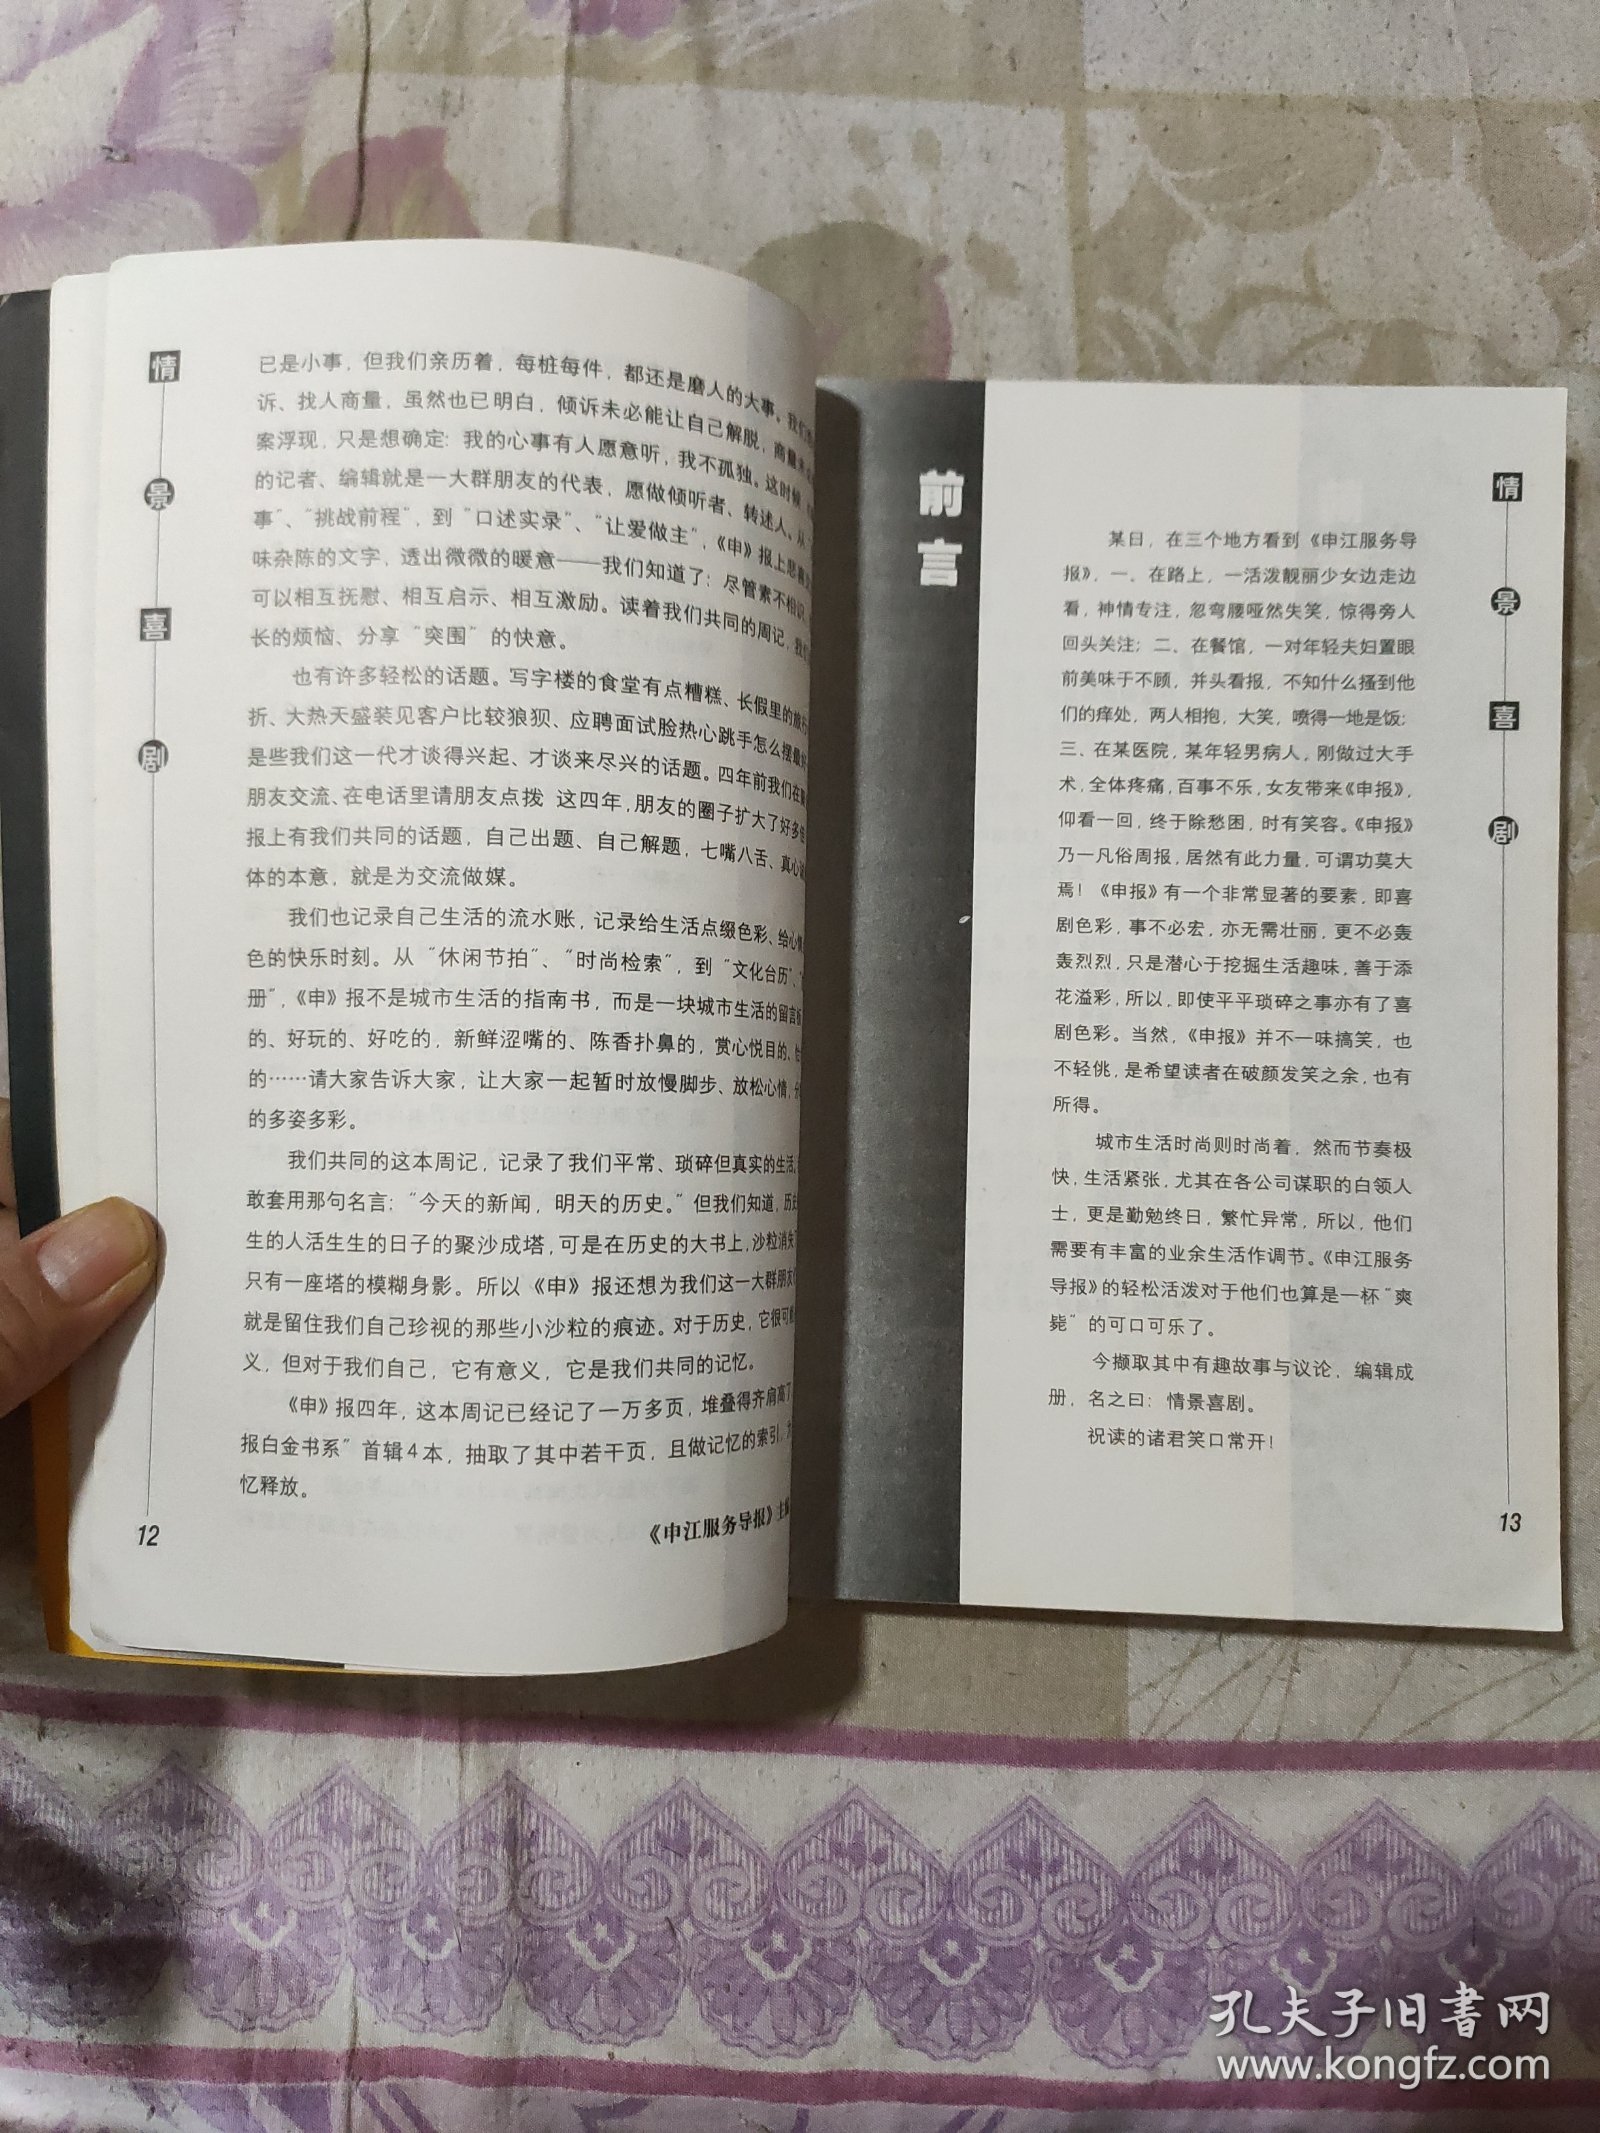 情
景
喜
剧
已是小事，但我们亲历着，每桩每件，都还是磨人的大事。我们
诉、找人商量，虽然也已明白，倾诉未必能让自己解脱，商量未必
案浮现，只是想确定：我的心事有人愿意听，我不孤独。这时候
的记者、编辑就是一大群朋友的代表，愿做倾听者、转述人。从
事”、“挑战前程”，到“口述实录”、“让爱做主”，《申》报上悲喜
味杂陈的文字，透出微微的暖意——我们知道了：尽管素不相识
可以相互抚慰、相互启示、相互激励。读着我们共同的周记，我们
长的烦恼、分享“突围”的快意。
也有许多轻松的话题。写字楼的食堂有点糟糕、长假里的旅行
折、大热天盛装见客户比较狼狈、应聘面试脸热心跳手怎么摆最
是些我们这一代才谈得兴起、才谈来尽兴的话题。四年前我们在
朋友交流、在电话里请朋友点拨 这四年，朋友的圈子扩大了好多
报上有我们共同的话题，自己出题、自己解题，七嘴八舌、真心
体的本意，就是为交流做媒。
我们也记录自己生活的流水账，记录给生活点缀色彩、给心情
色的快乐时刻。从“休闲节拍”、“时尚检索”，到“文化台历”、
册”，《申》报不是城市生活的指南书，而是一块城市生活的留言板
的、好玩的、好吃的，新鲜涩嘴的、陈香扑鼻的，赏心悦目的、
的……请大家告诉大家，让大家一起暂时放慢脚步、放松心情，
的多姿多彩。
我们共同的这本周记，记录了我们平常、琐碎但真实的生活。
敢套用那句名言：“今天的新闻，明天的历史。”但我们知道，历史
生的人活生生的日子的聚沙成塔，可是在历史的大书上，沙粒消失
只有一座塔的模糊身影。所以《申》报还想为我们这一大群朋友
就是留住我们自己珍视的那些小沙粒的痕迹。对于历史，它很可能
义，但对于我们自己，它有意义，它是我们共同的记忆。
《申》报四年，这本周记已经记了一万多页，堆叠得齐肩高了
报白金书系”首辑4本，抽取了其中若干页，且做记忆的索引，
忆释放。
《申江服务导报》主编
12
前言
某日，在三个地方看到《申江服务导
报》，一、在路上，一活泼靓丽少女边走边
看，神情专注，忽弯腰哑然失笑，惊得旁人
回头关注；二、在餐馆，一对年轻夫妇置眼
前美味于不顾，并头看报，不知什么搔到他
们的痒处，两人相抱，大笑，喷得一地是饭；
三、在某医院，某年轻男病人，刚做过大手
术，全体疼痛，百事不乐，女友带来《申报》，
仰看一回，终于除愁困，时有笑容。《申报》
乃一凡俗周报，居然有此力量，可谓功莫大
焉！《申报》有一个非常显著的要素，即喜
剧色彩，事不必宏，亦无需壮丽，更不必轰
轰烈烈，只是潜心于挖掘生活趣味，善于添
花溢彩，所以，即使平平琐碎之事亦有了喜
剧色彩。当然，《申报》并不一味搞笑，也
不轻佻，是希望读者在破颜发笑之余，也有
所得。
城市生活时尚则时尚着，然而节奏极
快，生活紧张，尤其在各公司谋职的白领人
士，更是勤勉终日，繁忙异常，所以，他们
需要有丰富的业余生活作调节。《申江服务
导报》的轻松活泼对于他们也算是一杯“爽
毙”的可口可乐了。
今撷取其中有趣故事与议论，编辑成
册，名之曰：情景喜剧。
祝读的诸君笑口常开！
情
景
喜
剧
13
孔夫子旧书网
www.kongfz.com